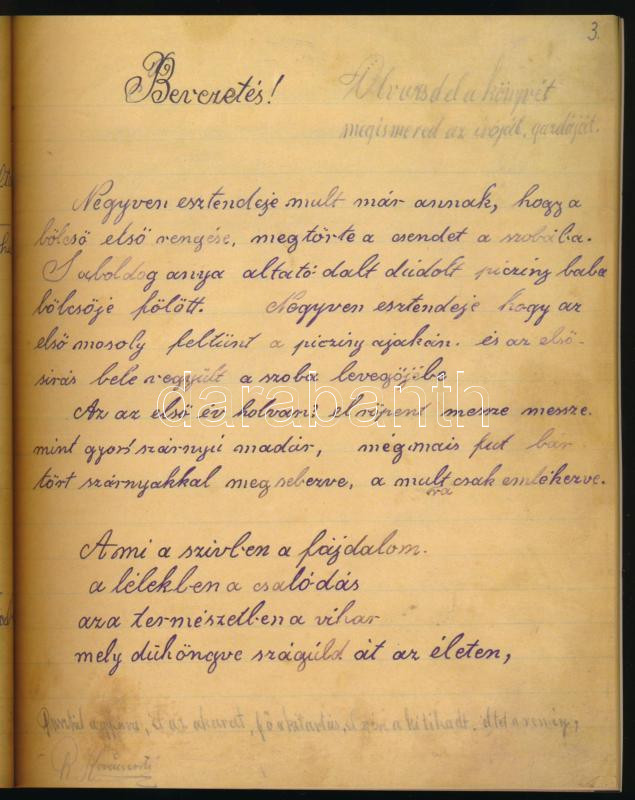 3.
Bevezetés!
Olvasd el a könyvét
megismered az iróját, gazdáját.
Negyven esztendeje mult már annak, hogy a
bölcső első rengése, megtörte a csendet a szobába.
S a boldog anya altató dalt dúdolt picziny baba
bölcsője fölött. Negyven esztendeje hogy az
első mosoly feltünt a picziny ajakán. és az első
sirás bele vegyült a szoba levegőjébe
Az az első év holvan! elröpent messze messze.
mint gyors szárnyú madár, még mais fut bár
tört szárnyakkal meg sebezve, a mult csak emlékezve.
ra
Ami a szivben a fájdalom.
a lélekben a csalódás
az a természetben a vihar
mely dühöngve száguld át az életen,
darabanth